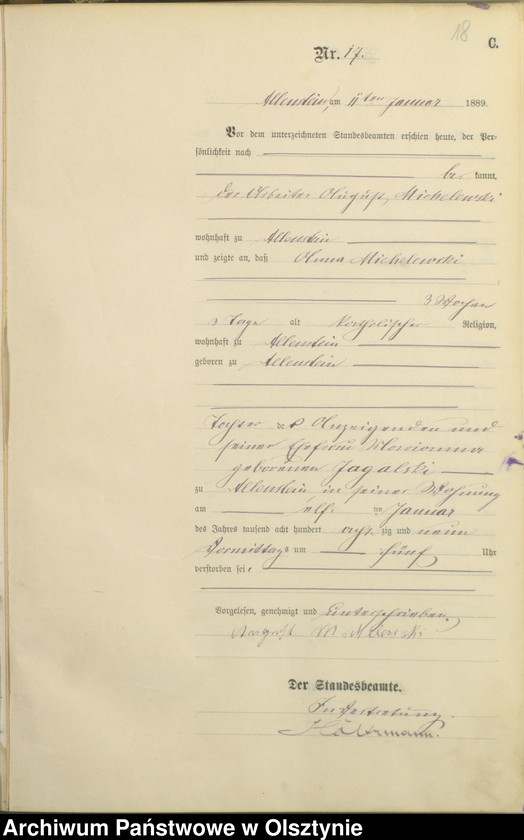 18
C.
Nr. 17.
Allenstein, am 11ten Januar 1889.
Vor dem unterzeichneten Standesbeamten erschien heute, der Per-
sönlichkeit nach
be kannt,
der Arbeiter August Michelewski
wohnhaft zu Allenstein
und zeigte an, daß Anna Michelewski
3 Wochen
3 Tage alt katholischer Religion,
wohnhaft zu Allenstein
geboren zu Allenstein
Tochter des Anzeigenden und
seiner Ehefrau Marianna
geborenen Jagalski
zu Allenstein in seiner Wohnung
am elf ten Januar
des Jahres tausend acht hundert acht zig und neun
Vormittags um fünf Uhr
verstorben sei.
Vorgelesen, genehmigt und unterschrieben.
August
Der Standesbeamte.
In Vertretung.
Archiwum Państwowe w Olsztynie